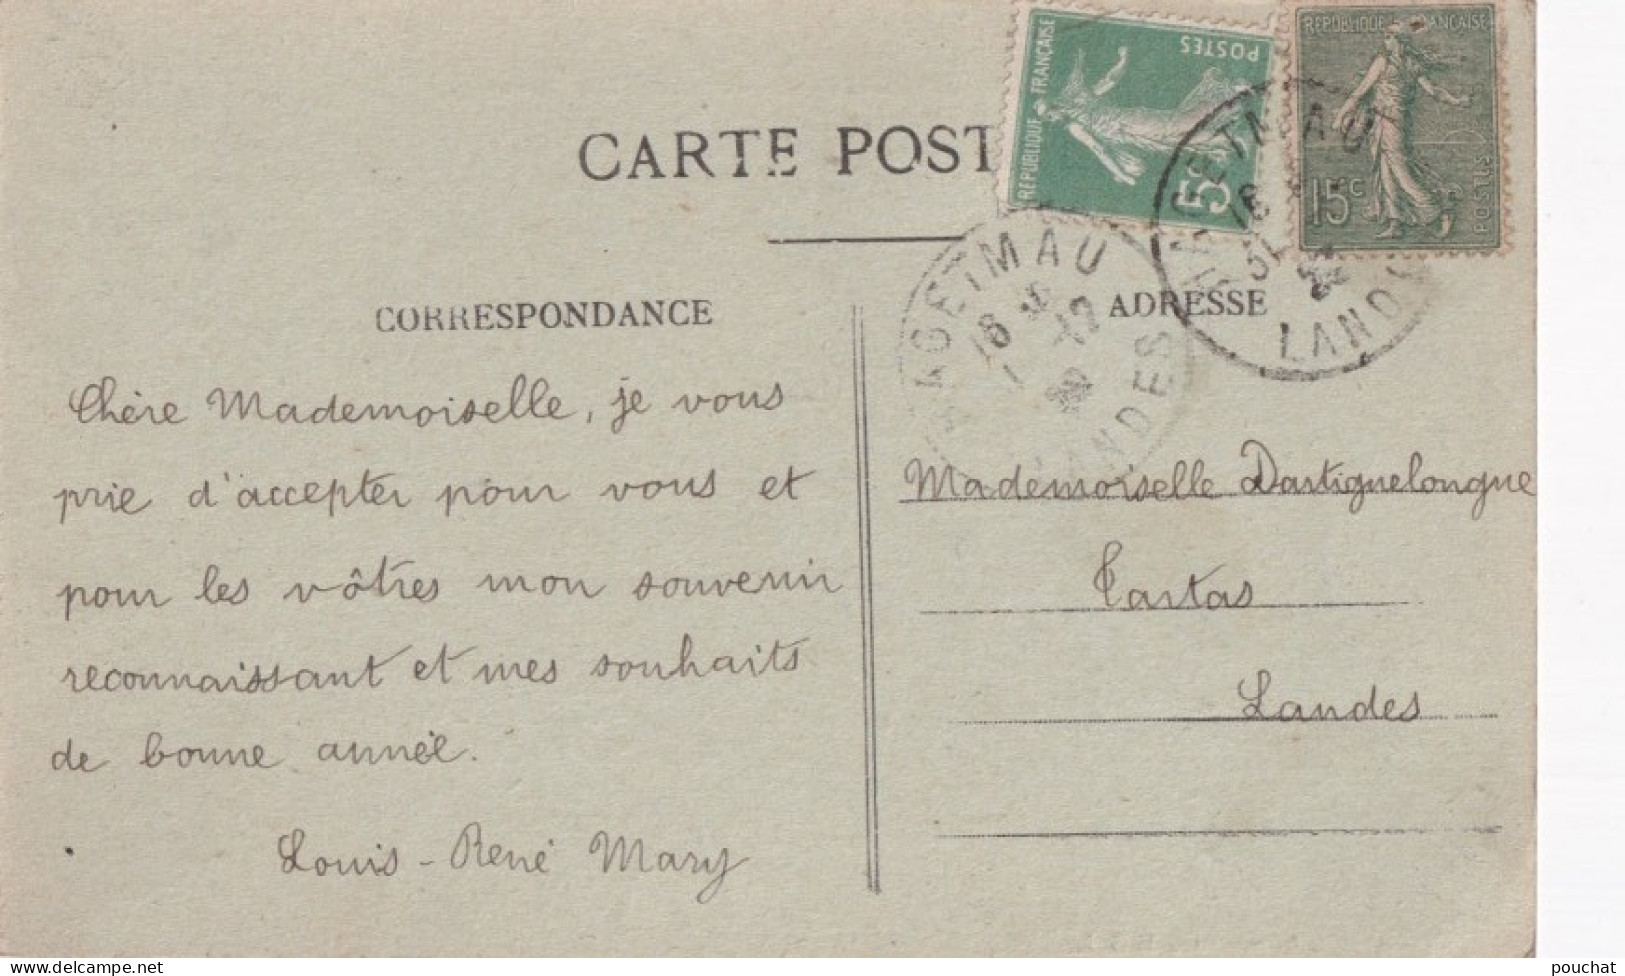 CARTE POST
RÉPUBLIQUE FRANÇAISE
POSTES
5c
RÉPUBLIQUE FRANÇAISE
15c
POSTES
HAGETMAU
18
31
LANDES
HAGETMAU
18
12
LANDES
CORRESPONDANCE
ADRESSE
Chère Mademoiselle, je vous
prie d'accepter pour vous et
pour les vôtres mon souvenir
reconnaissant et mes souhaits
de bonne année.
Louis-René Mary
Mademoiselle Dartiguelongue
Tartas
Landes
pouchat